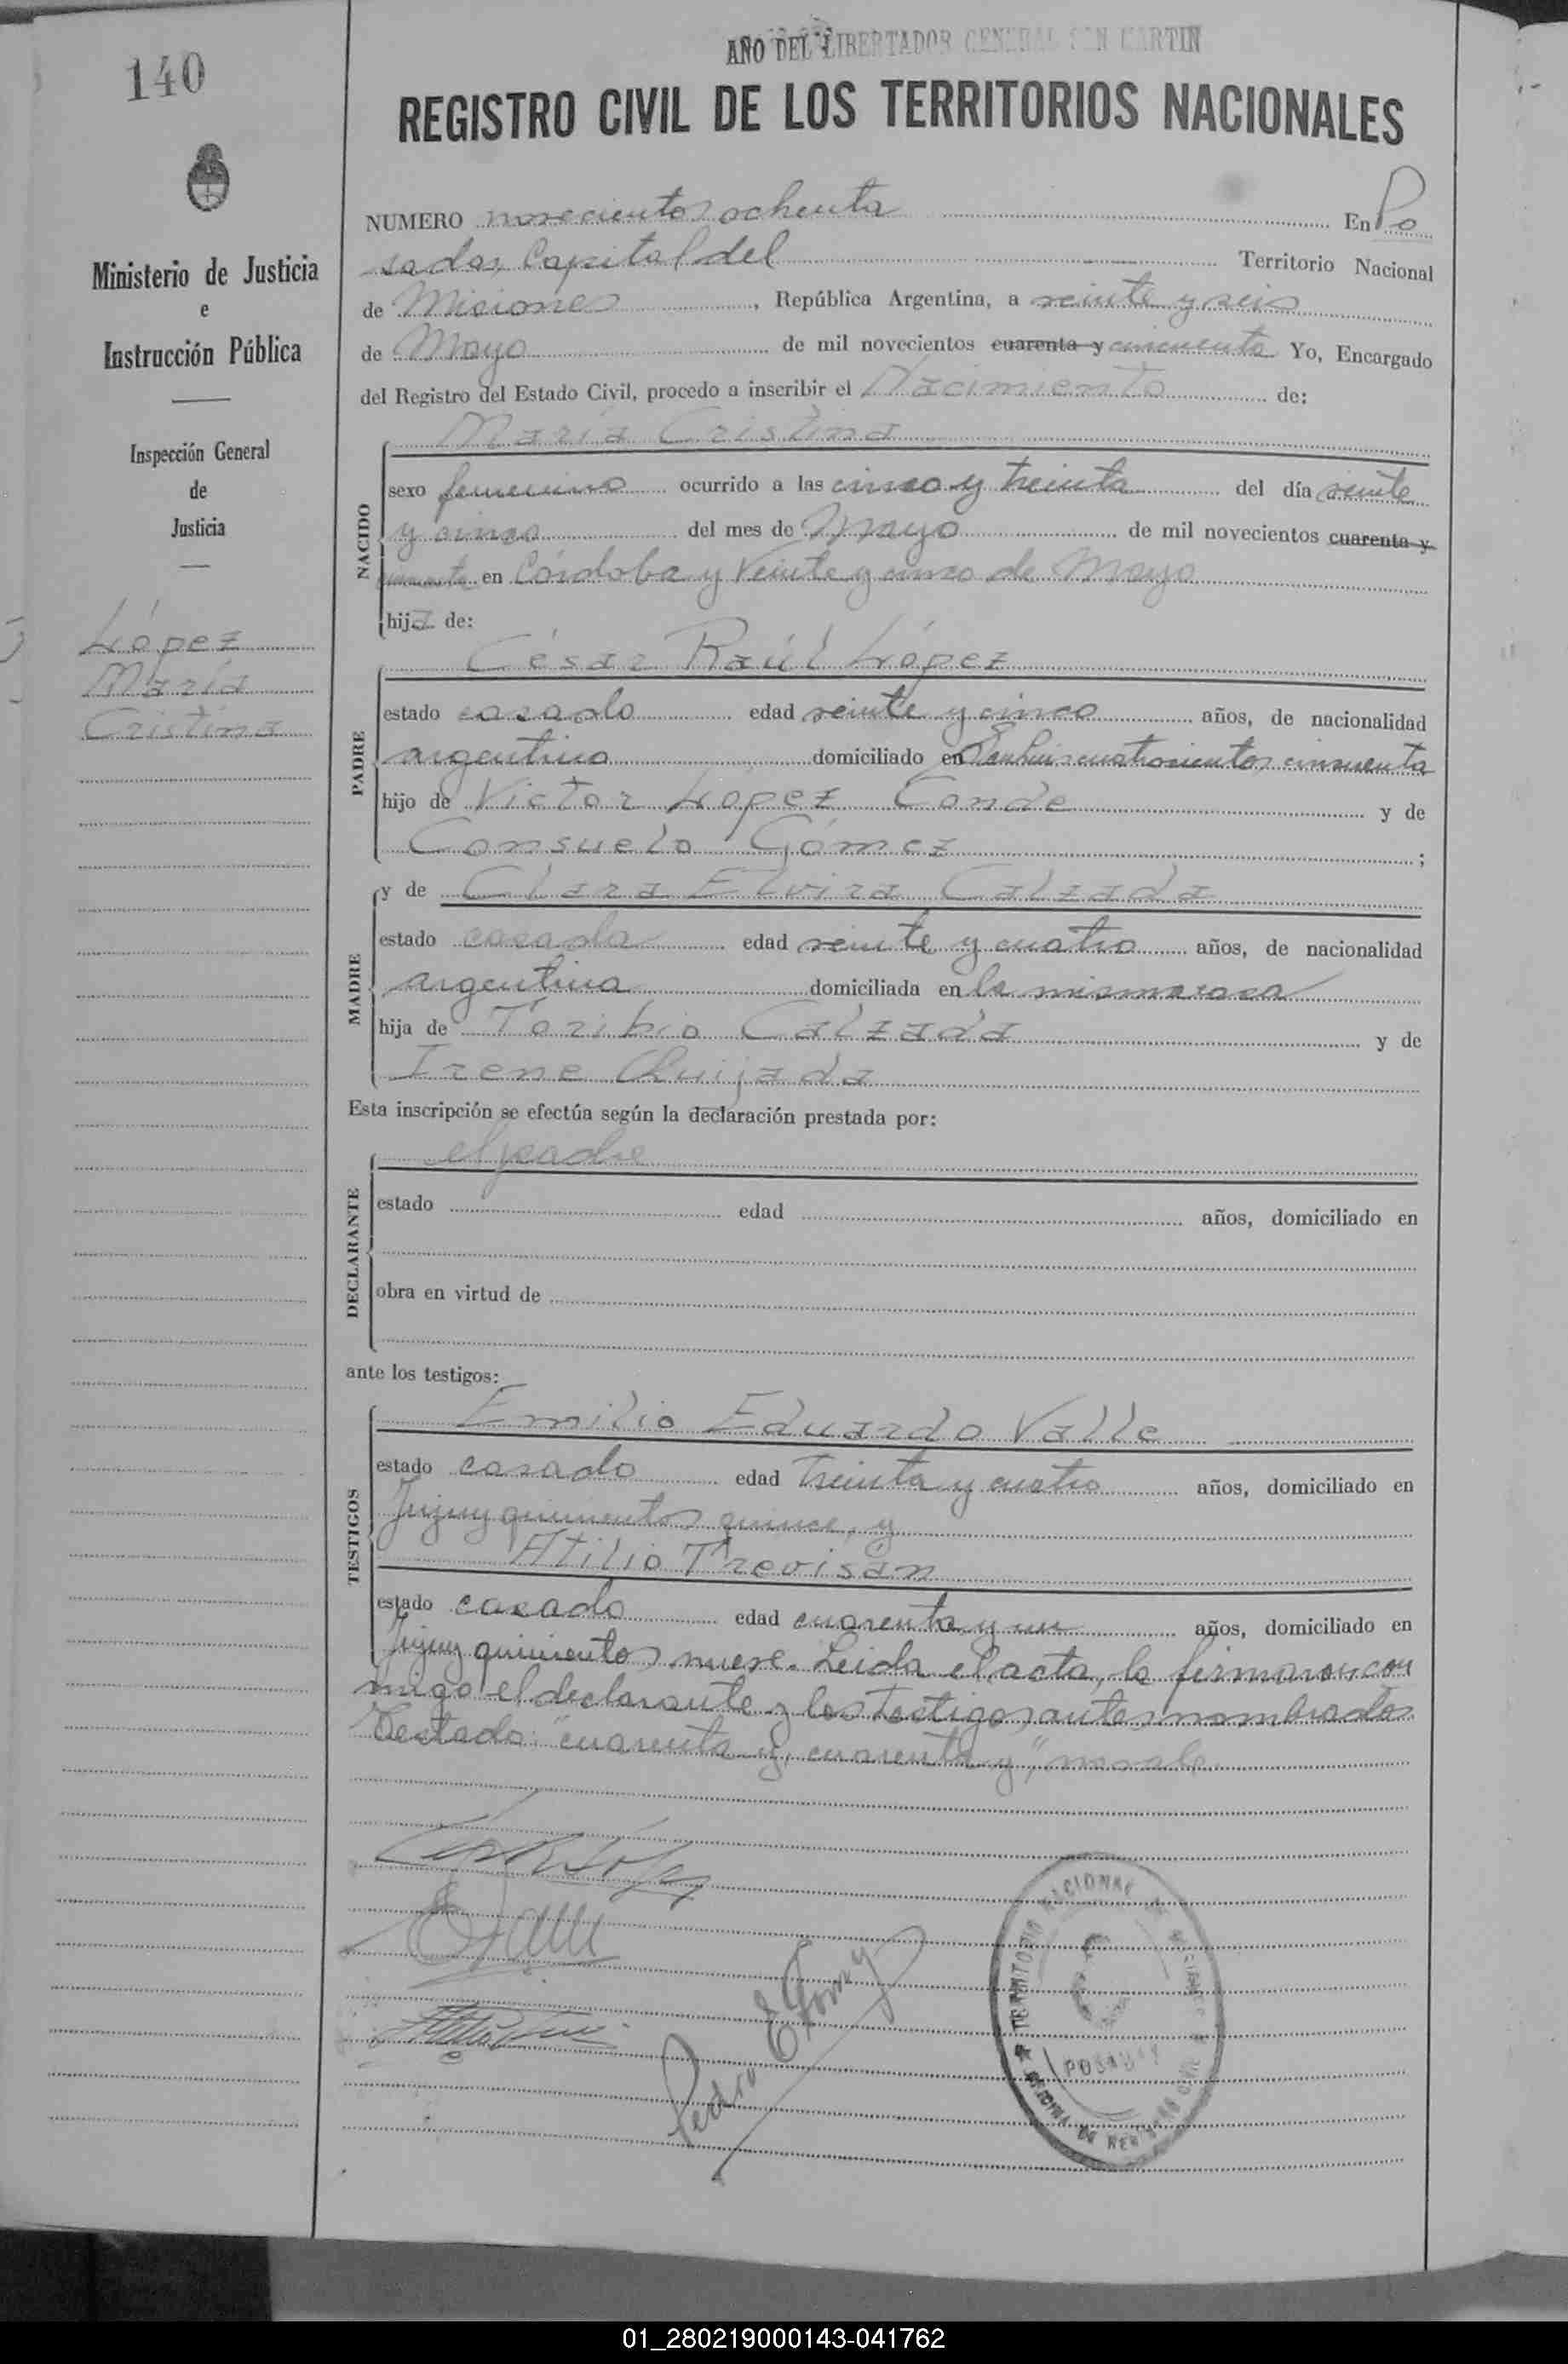 140
AÑO DEL LIBERTADOR GENERAL SAN MARTIN
REGISTRO CIVIL DE LOS TERRITORIOS NACIONALES
Ministerio de Justicia
e
Instrucción Pública
Inspección General
de
Justicia
López
María
Cristina
NUMERO novecientos ochenta En Po
sadas, Capital del Territorio Nacional
de Misiones, República Argentina, a veinte y seis
de Mayo de mil novecientos cuarenta y cincuenta Yo, Encargado
del Registro del Estado Civil, procedo a inscribir el Nacimiento de:
María Cristina
NACIDO
sexo femenino ocurrido a las cinco y treinta del día veinte
y cinco del mes de Mayo de mil novecientos cuarenta y
cincuenta en Córdoba y Veinte y cinco de Mayo
hija de:
César Raúl López
PADRE
estado casado edad veinte y cinco años, de nacionalidad
argentino domiciliado en San Luis cuatrocientos cincuenta
hijo de Victor López Conde y de
Consuelo Gómez ;
MADRE
y de Clara Elvira Calzada
estado casada edad veinte y cuatro años, de nacionalidad
argentina domiciliada en la misma casa
hija de Toribio Calzada y de
Irene Quijada
Esta inscripción se efectúa según la declaración prestada por:
DECLARANTE
el padre
estado edad años, domiciliado en
obra en virtud de
ante los testigos:
TESTIGOS
Emilio Eduardo Valle
estado casado edad treinta y cuatro años, domiciliado en
Jujuy quinientos quince, y
Atilio Trevisán
estado casado edad cuarenta y un años, domiciliado en
Jujuy quinientos nueve. Leida el acta, la firmaron con
migo el declarante y los testigos antes nombrados
Testado: "cuarenta y, cuarenta y", no vale
Pedro E
TERRITORIO NACIONAL DE MISIONES
POSADAS
OFICINA DE REGISTRO CIVIL
01_280219000143-041762